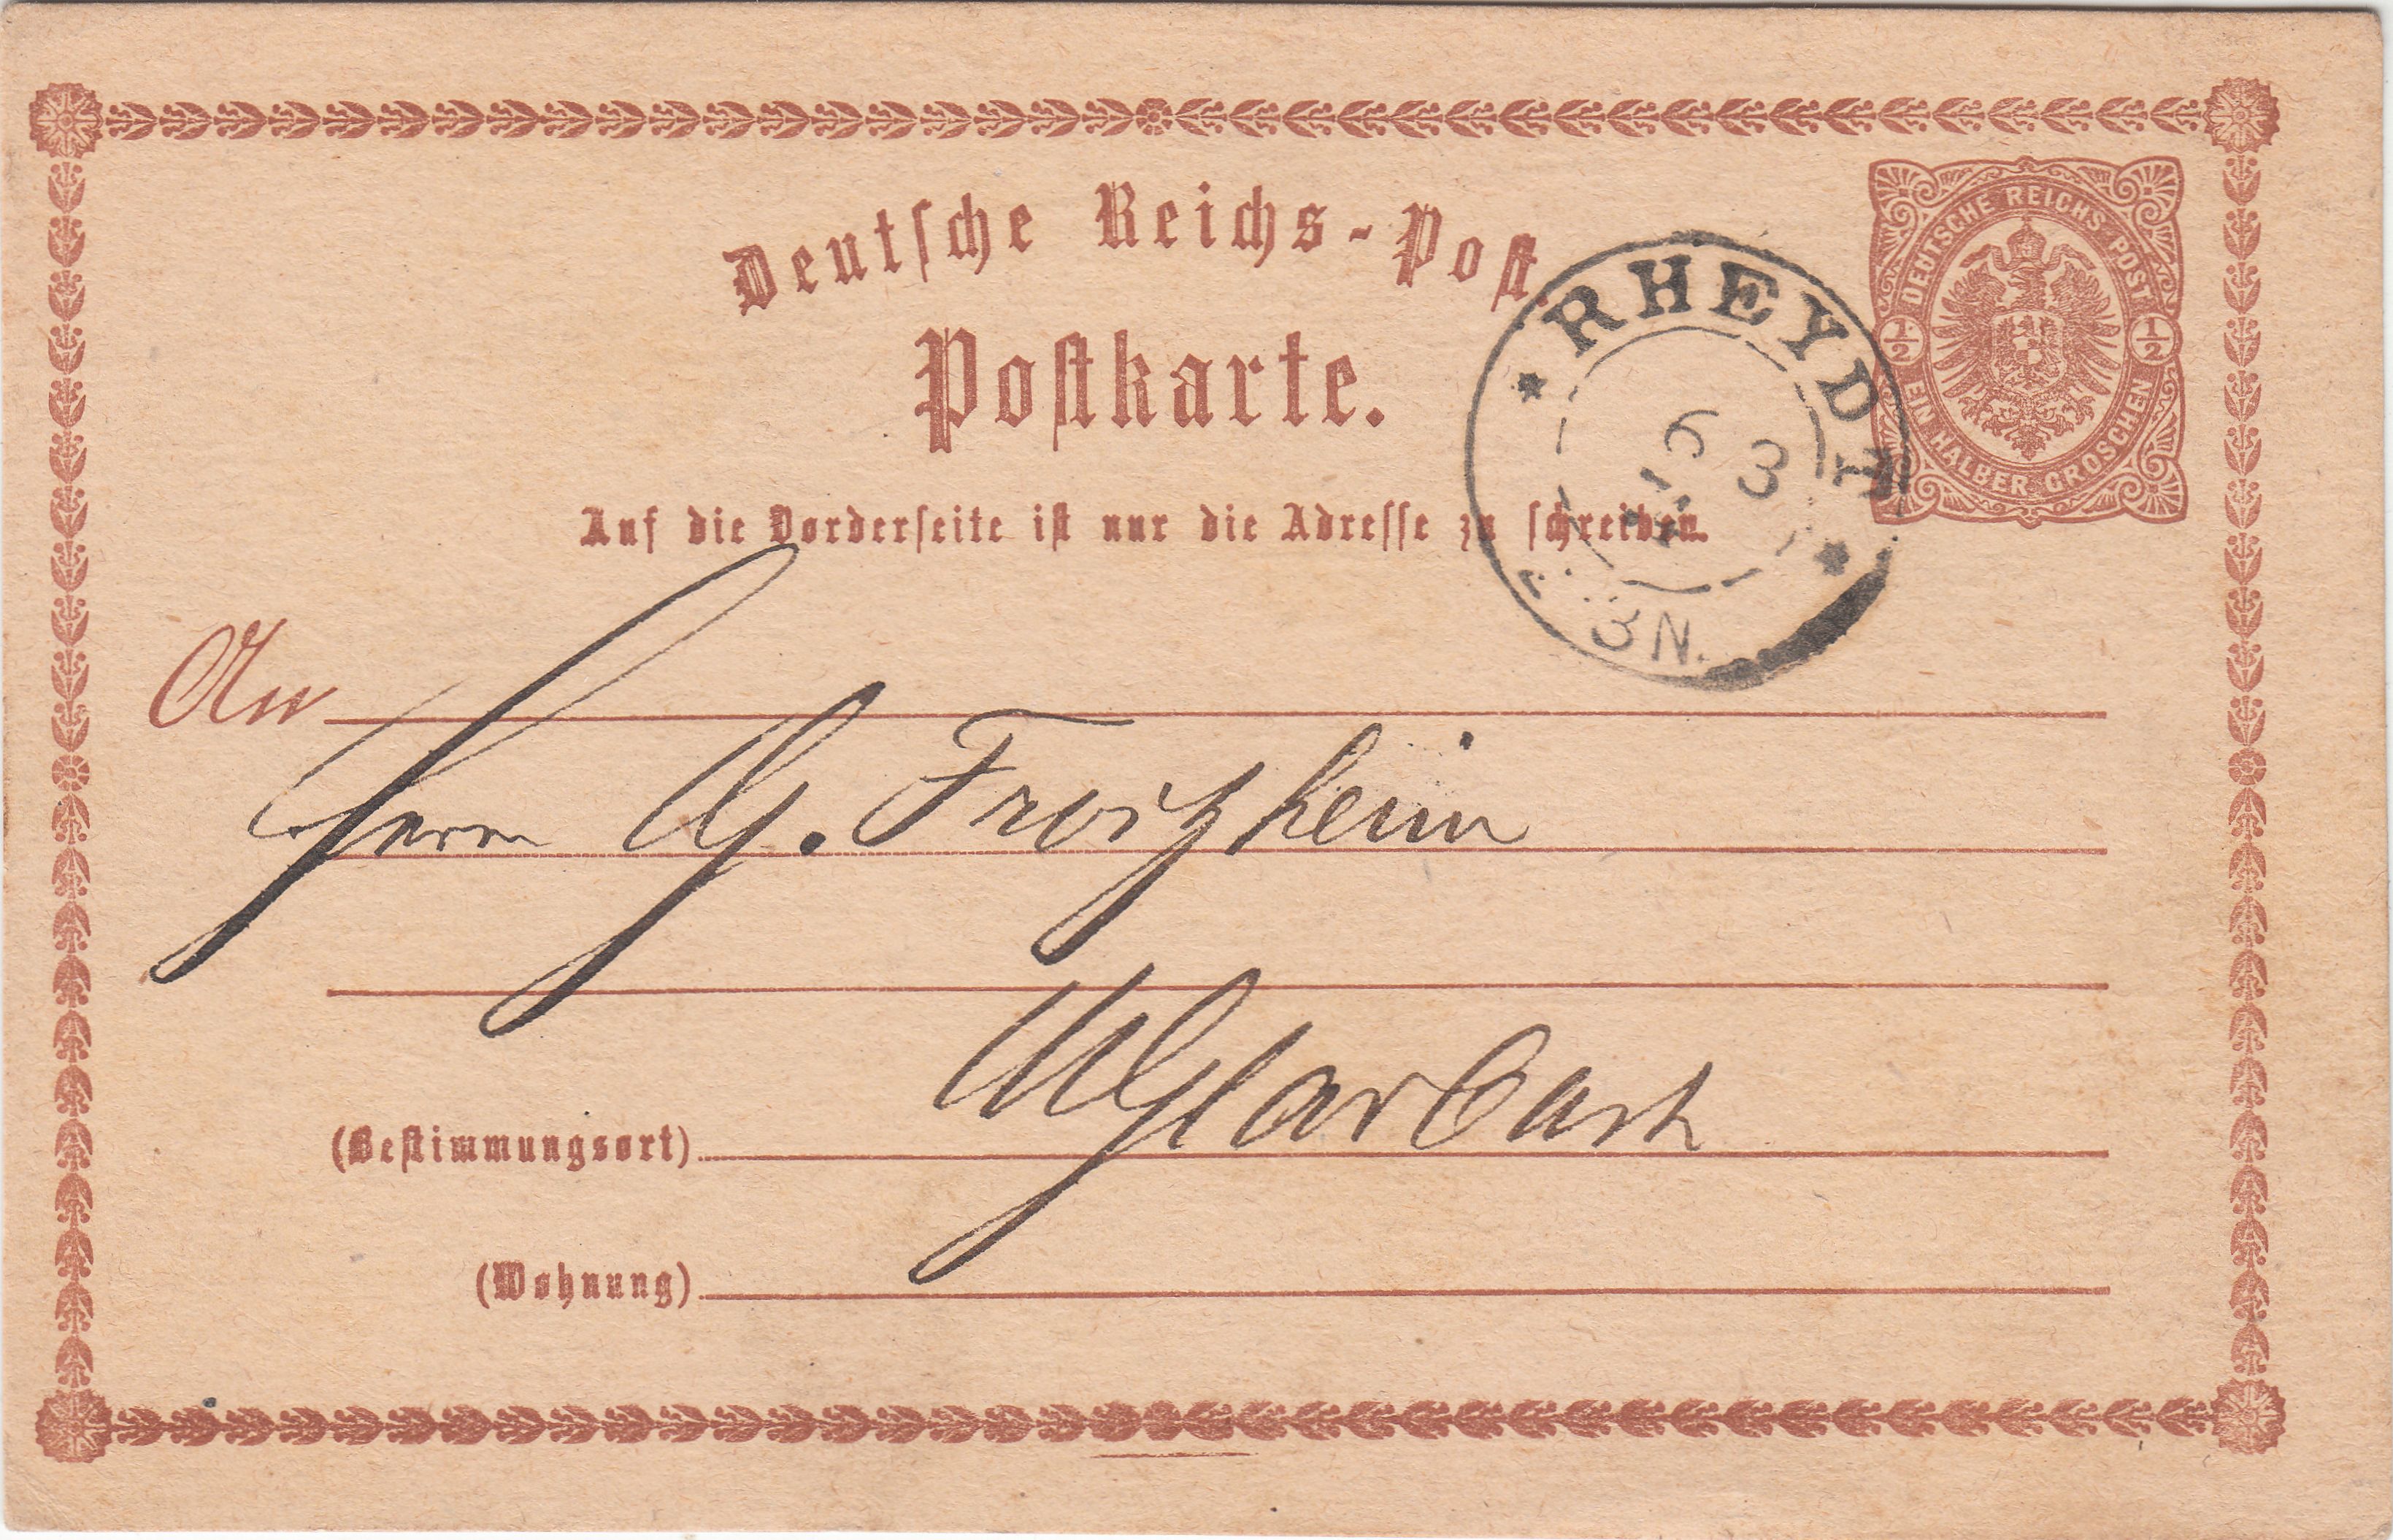 Deutsche Reichs-Post.
Postkarte.
DEUTSCHE REICHS POST
1/2 1/2
EIN HALBER GROSCHEN
* RHEYDT *
6 3
BN.
Auf die Vorderseite ist nur die Adresse zu schreiben.
An
Herrn G. Froitzheim
MGladbach
(Bestimmungsort)
(Wohnung)